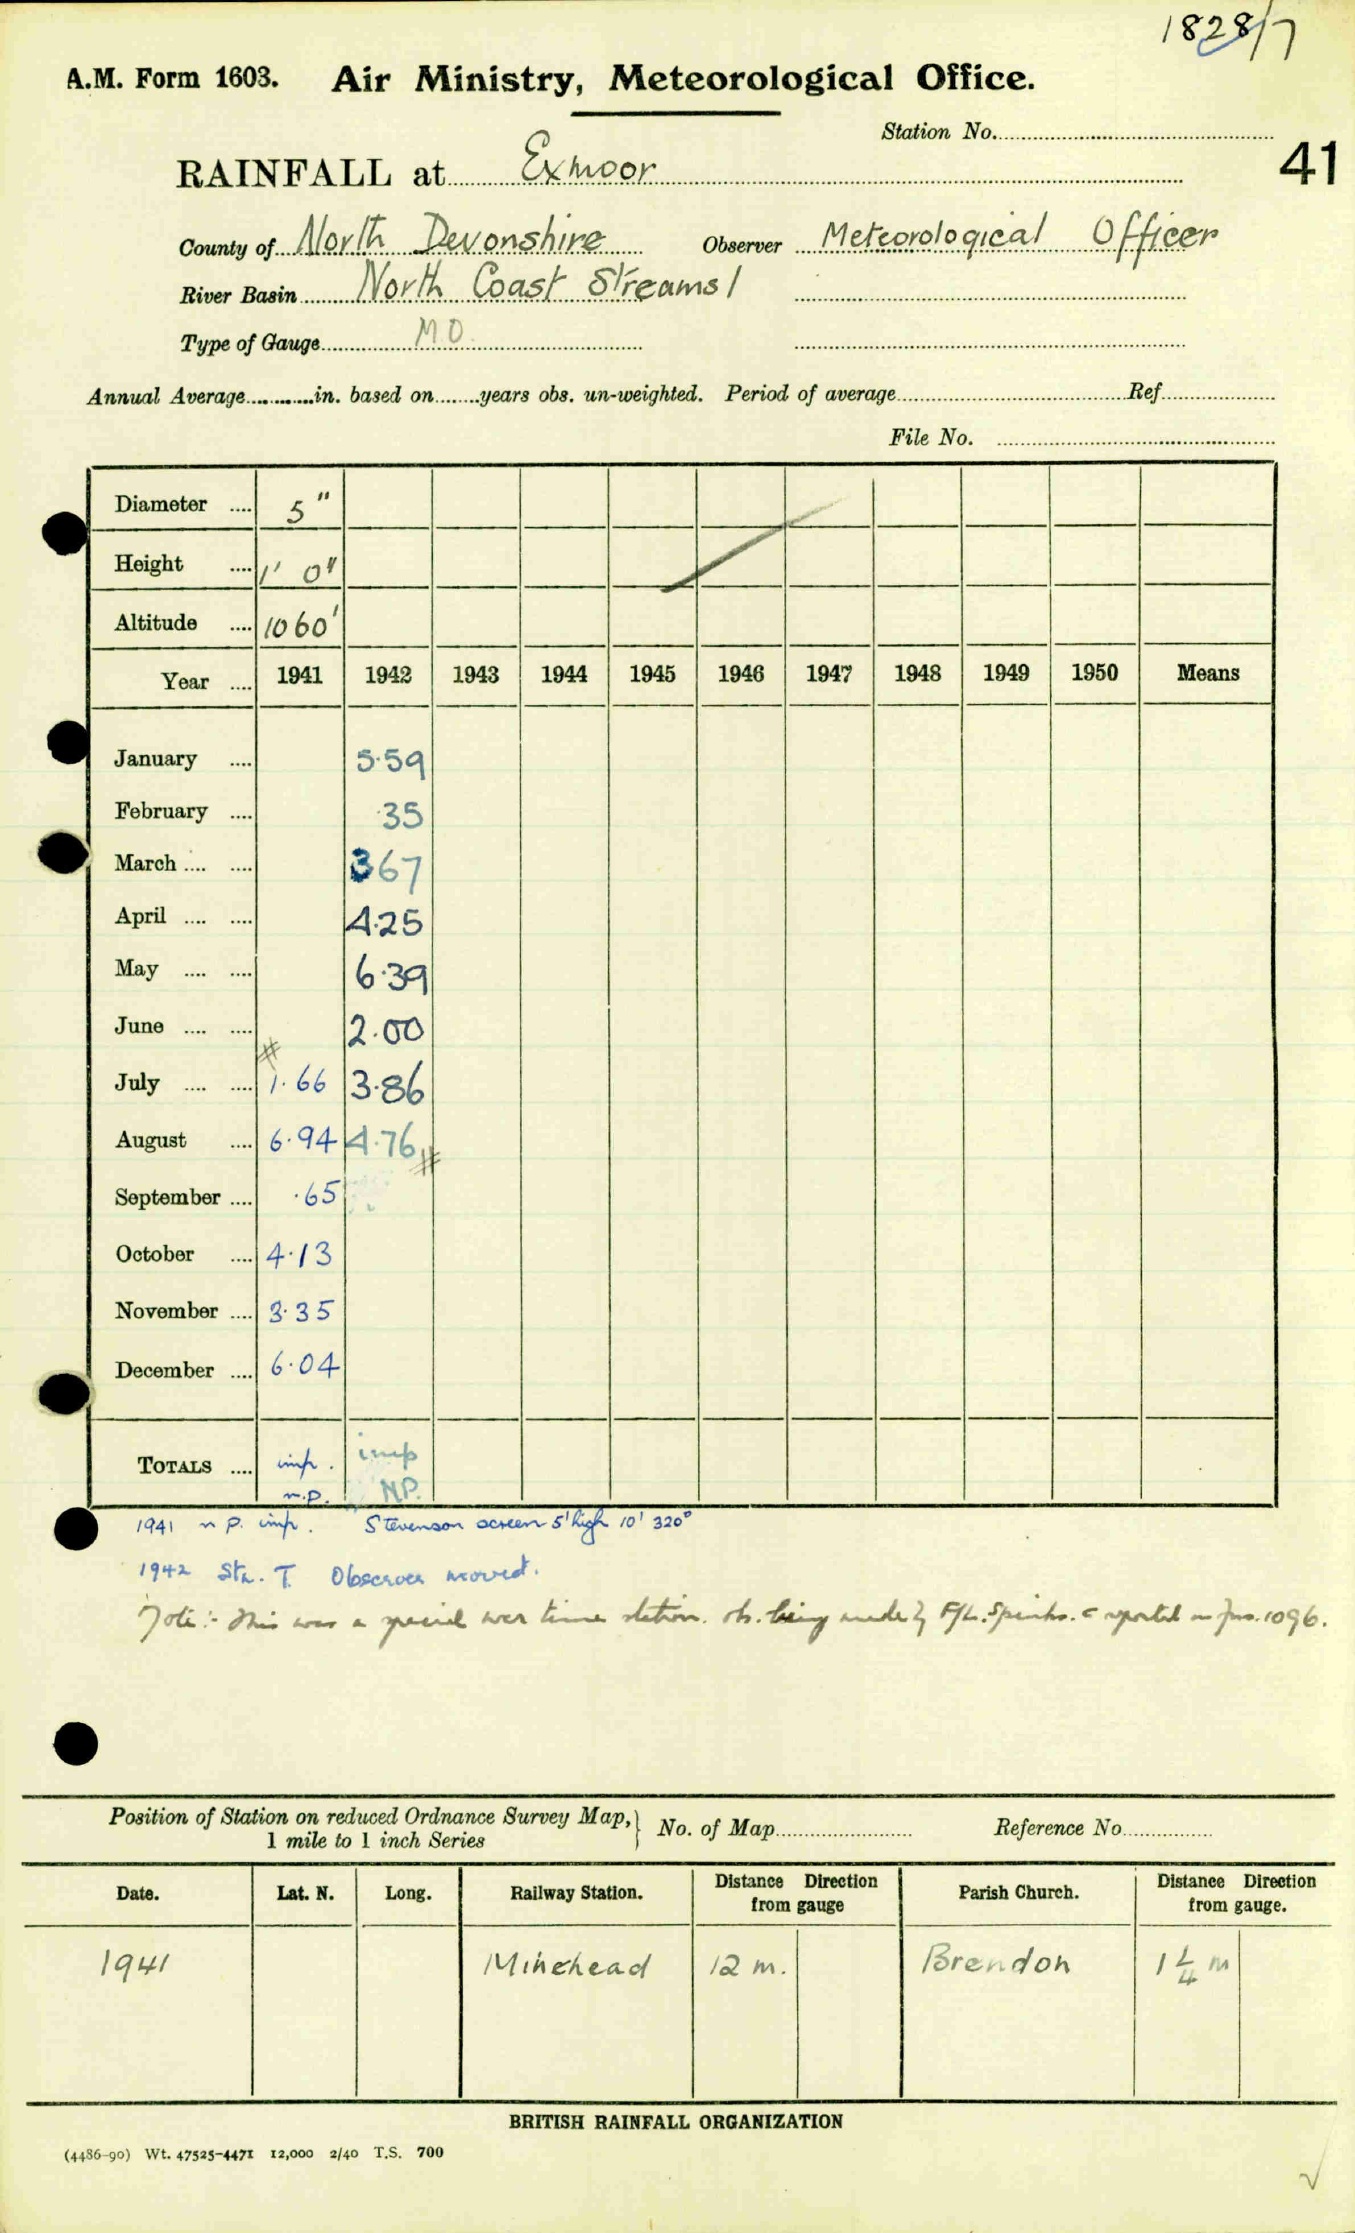 1828/7
A.M. Form 1603. Air Ministry, Meteorological Office.
Station No.
41
RAINFALL at Exmoor
County of North Devonshire Observer Meteorological Officer
River Basin North Coast Streams 1
Type of Gauge MO
Annual Average in. based on years obs. un-weighted. Period of average Ref
File No.
Diameter 5"
Height 1' 0"
Altitude 1060'
Year 1941 1942 1943 1944 1945 1946 1947 1948 1949 1950 Means
January 5.59
February .35
March 3 67
April 4.25
May 6.39
June 2.00
July 1.66 3.86
August 6.94 4.76
September .65
October 4.13
November 3.35
December 6.04
TOTALS imp. imp
n.p. N.P.
1941 n p. imp. Stevenson screen 5' high 10' 320°
1942 Stn. T. Observer moved.
Note:- This was a special war time station. obs. being made by F/L. Spinks. reported in 1096.
Position of Station on reduced Ordnance Survey Map, } No. of Map Reference No.
1 mile to 1 inch Series
Date. Lat. N. Long. Railway Station. Distance Direction from gauge Parish Church. Distance Direction from gauge.
1941 Minehead 12 m. Brendon 1 1/4 m
BRITISH RAINFALL ORGANIZATION
(4486-90) Wt. 47525-4471 12,000 2/40 T.S. 700